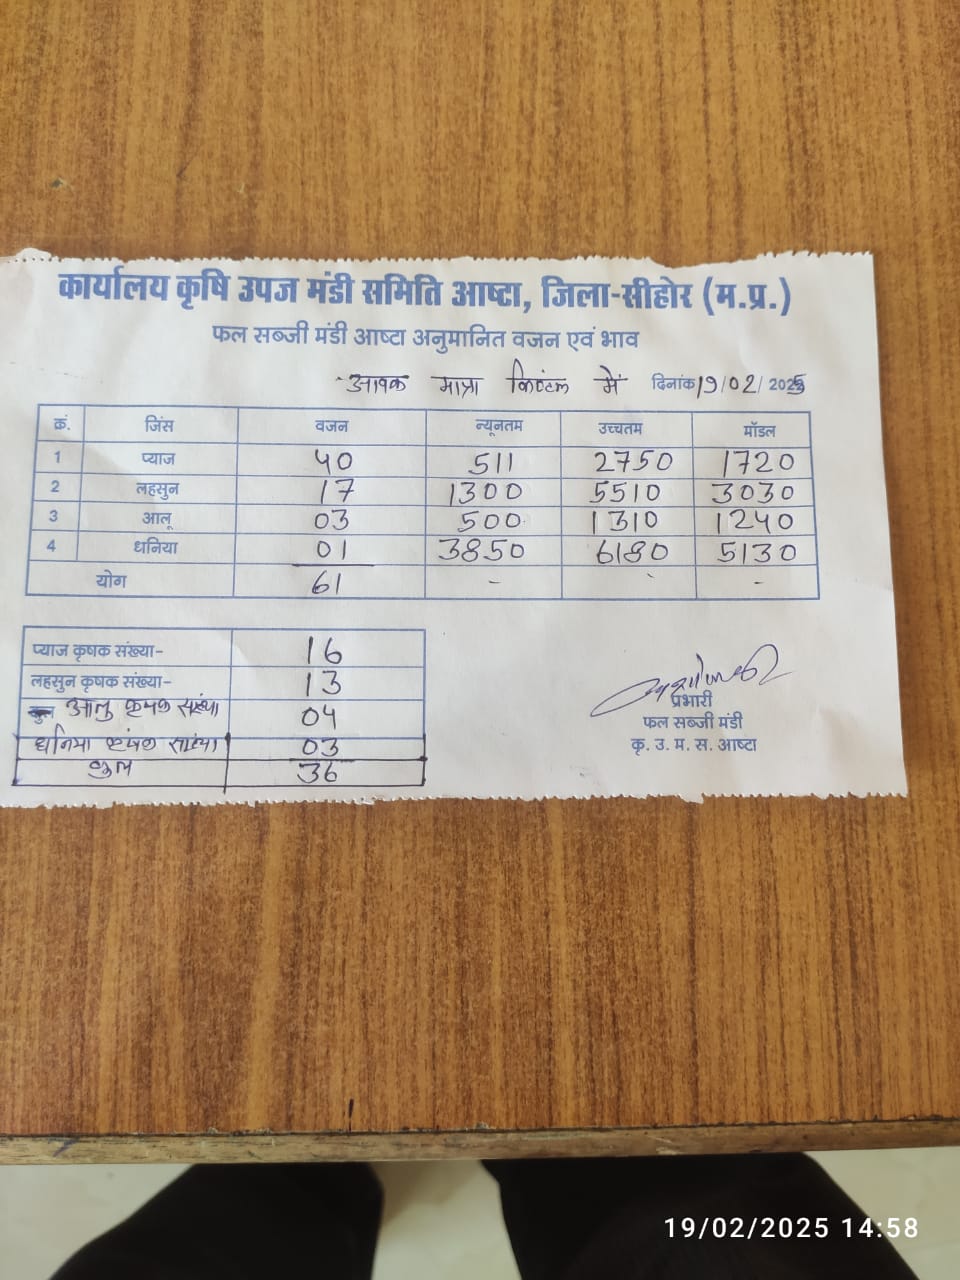 कार्यालय कृषि उपज मंडी समिति आष्टा, जिला-सीहोर (म.प्र.)
फल सब्जी मंडी आष्टा अनुमानित वजन एवं भाव
आवक मात्रा क्विंटल में दिनांक 19/02/2025
क्रं. जिंस वजन न्यूनतम उच्चतम मॉडल
1 प्याज 40 511 2750 1720
2 लहसुन 17 1300 5510 3030
3 आलू 03 500 1310 1240
4 धनिया 01 3850 6180 5130
योग 61 - - -
प्याज कृषक संख्या- 16
लहसुन कृषक संख्या- 13
आलु कृषक संख्या 04
धनिया कृषक संख्या 03
कुल 36
प्रभारी
फल सब्जी मंडी
कृ. उ. म. स. आष्टा
19/02/2025 14:58